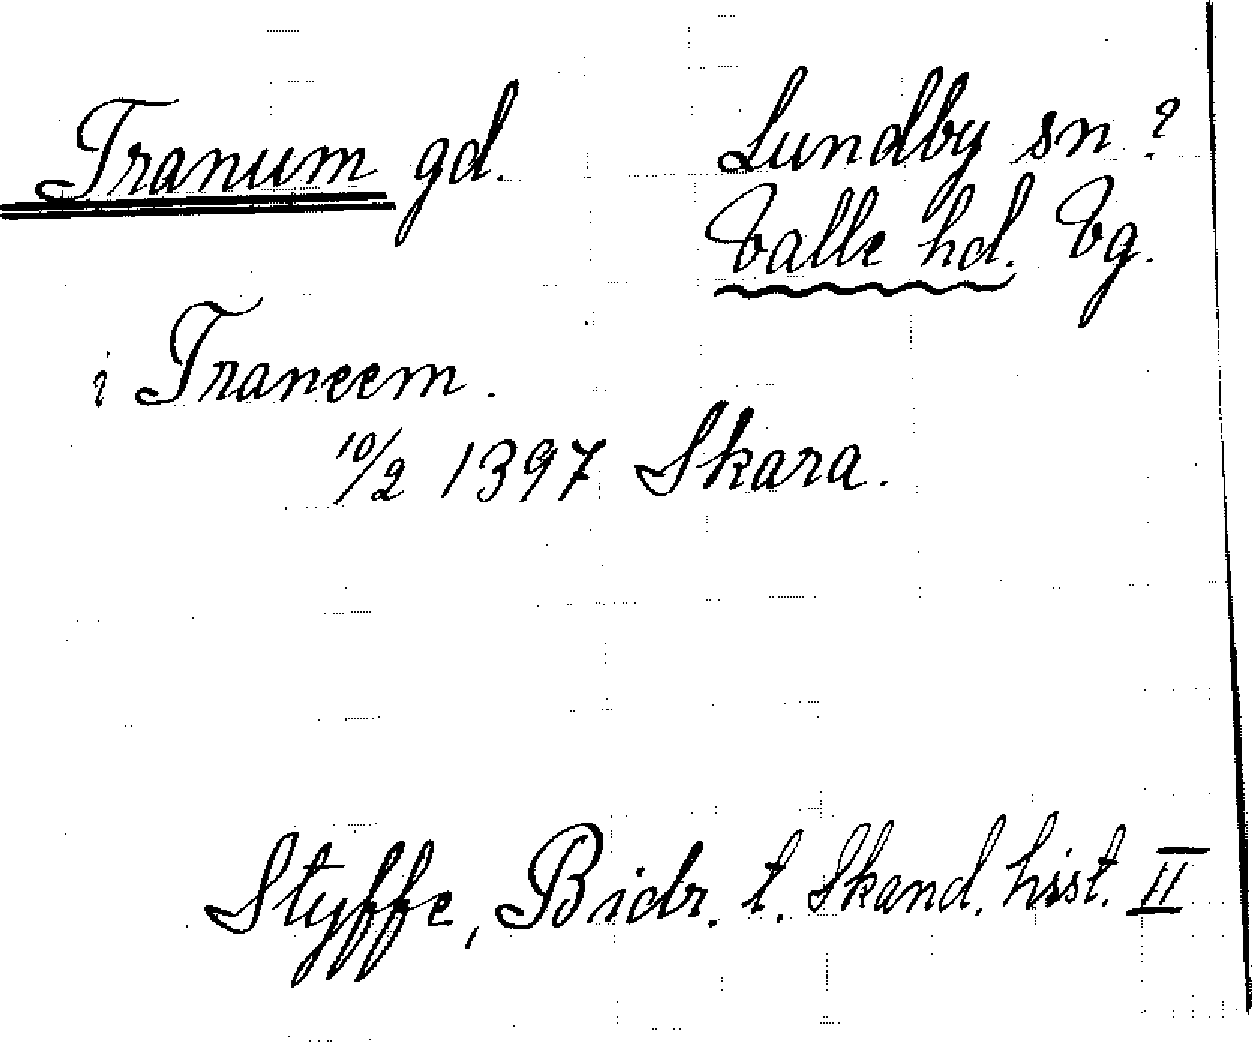 Tranum gd. Lundby sn?
Valle hd. Vg.
i Traneem.
10/2 1397 Skara.
Styffe, Bidr. t. Skand. hist. II